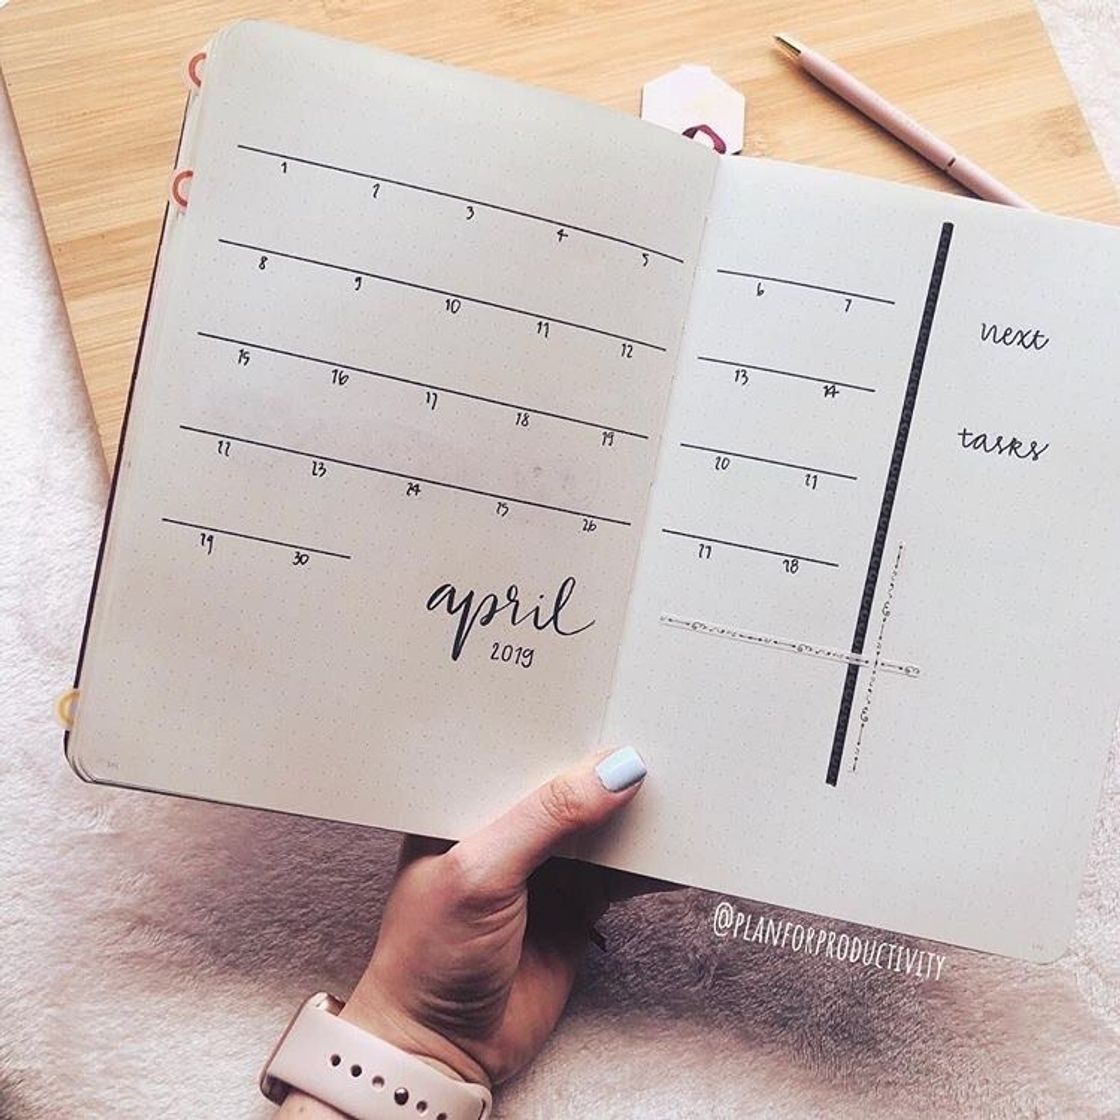 1 2 3 4 5
8 9 10 11 12
15 16 17 18 19
22 23 24 25 26
29 30
april
2019
6 7
13 14
20 21
27 28
next
tasks
@PLANFORPRODUCTIVITY